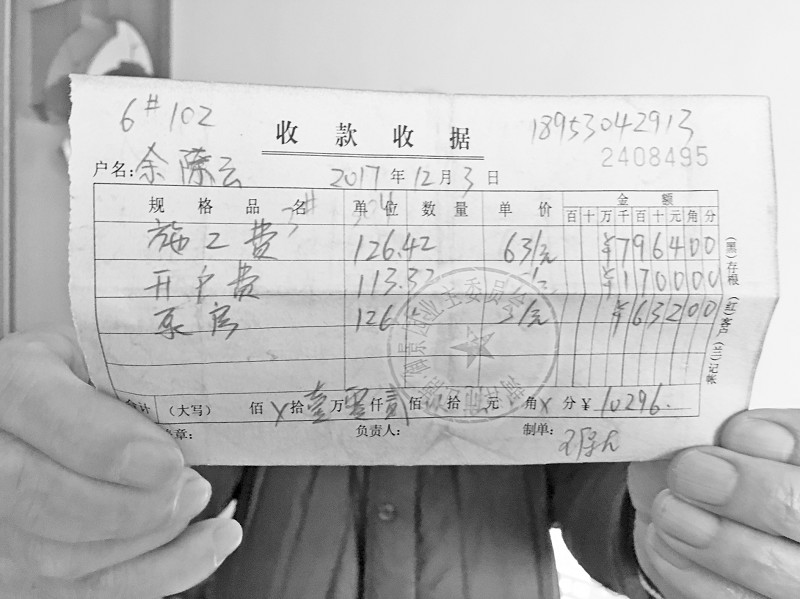 6#102
收款收据
18953042913
2408495
户名: 余陈云 2017年12月3日
规格品名 单位 数量 单价 金额
百十万千百十元角分
施工费 126.42 63/元 ¥796400
开户费 113.32 ¥170000
泵房 126 5/元 ¥63200
(大写) 佰 X 拾 壹 万 零 仟 贰 佰 拾 元 角 X 分 ¥ 10296.
章: 负责人: 制单:
(黑)存根 (红)客户 (兰)记帐
业主委员